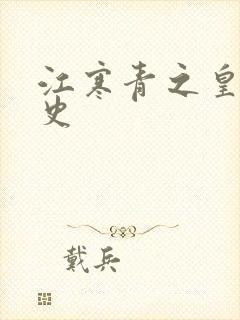 江寒青之皇
史
戴兵